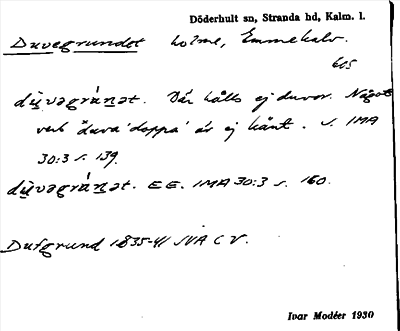 Döderhult sn, Stranda hd, Kalm. l.
Duvegrundet holme, Emmekalv.
605
dṳvəgránət. Där hålls ej duvor. Något
verb 'duva' 'doppa' är ej känt. S. IMA
30:3 s. 139.
dṳvəgránət. EE. IMA 30:3 s. 160.
Dufgrund 1835-41 JVA C V.
Ivar Modéer 1930